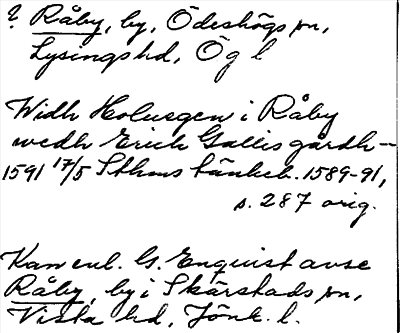 ? Råby, by, Ödeshögs sn,
Lysings hd, Ög l
Widh Holmsgen i Råby
wedh Erich Gallis gårdh -
1591 17/5 Sthms tänkeb. 1589-91,
s. 287 orig.
Kan enl. G. Enquist avse
Råby, by i Skärstads sn,
Vista hd, Jönk. l.